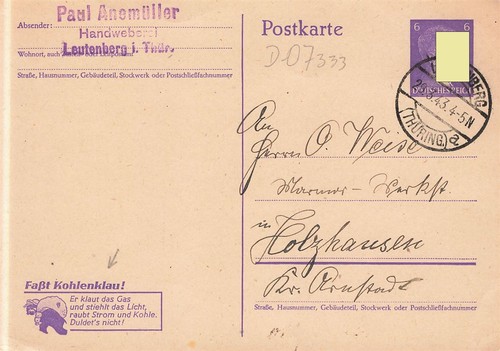 Paul Anemüller
Absender:
Handweberei
Wohnort, auch Zustell- oder Leitpostamt
Leutenberg i. Thür.
Straße, Hausnummer, Gebäudeteil, Stockwerk oder Postschließfachnummer
Postkarte
D-07333
6 6
DEUTSCHES REICH
43.4-5N
(THÜRING.)
a
An
Herrn O. Weise
Marmor-Werkst.
in
Holzhausen
Kr. Arnstadt
Straße, Hausnummer, Gebäudeteil, Stockwerk oder Postschließfachnummer
Faßt Kohlenklau!
Er klaut das Gas
und stiehlt das Licht,
raubt Strom und Kohle.
Duldet's nicht!